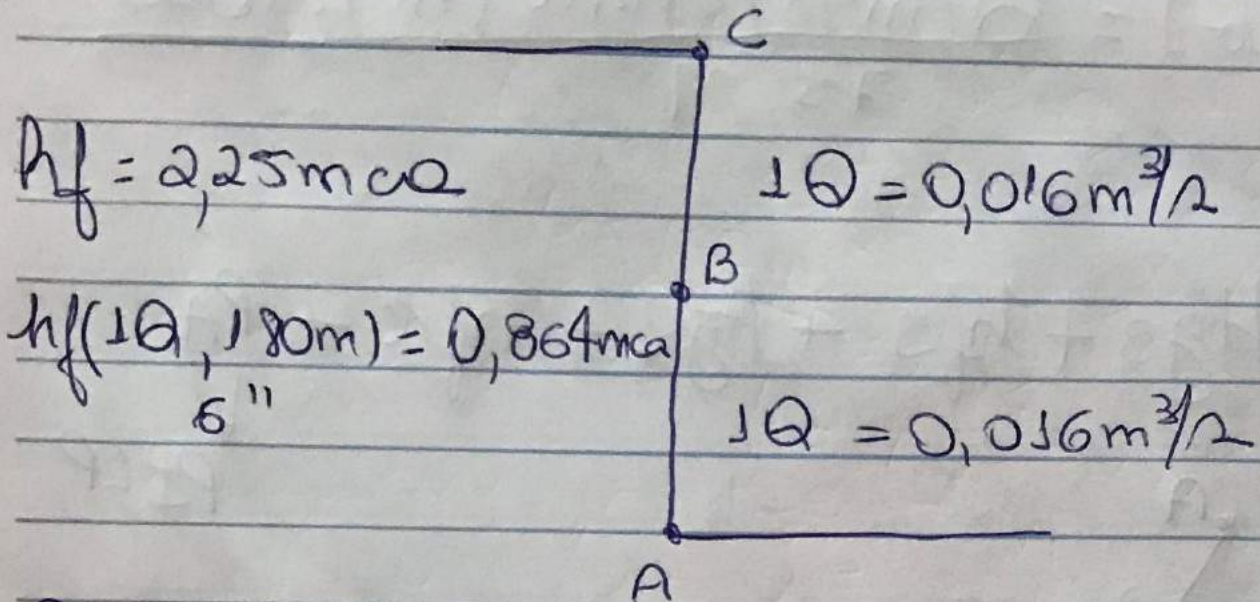 C
hf = 2,25mca
1Q = 0,016m³/s
B
hf(1Q, 180m) = 0,864mca
6"
1Q = 0,016m³/s
A